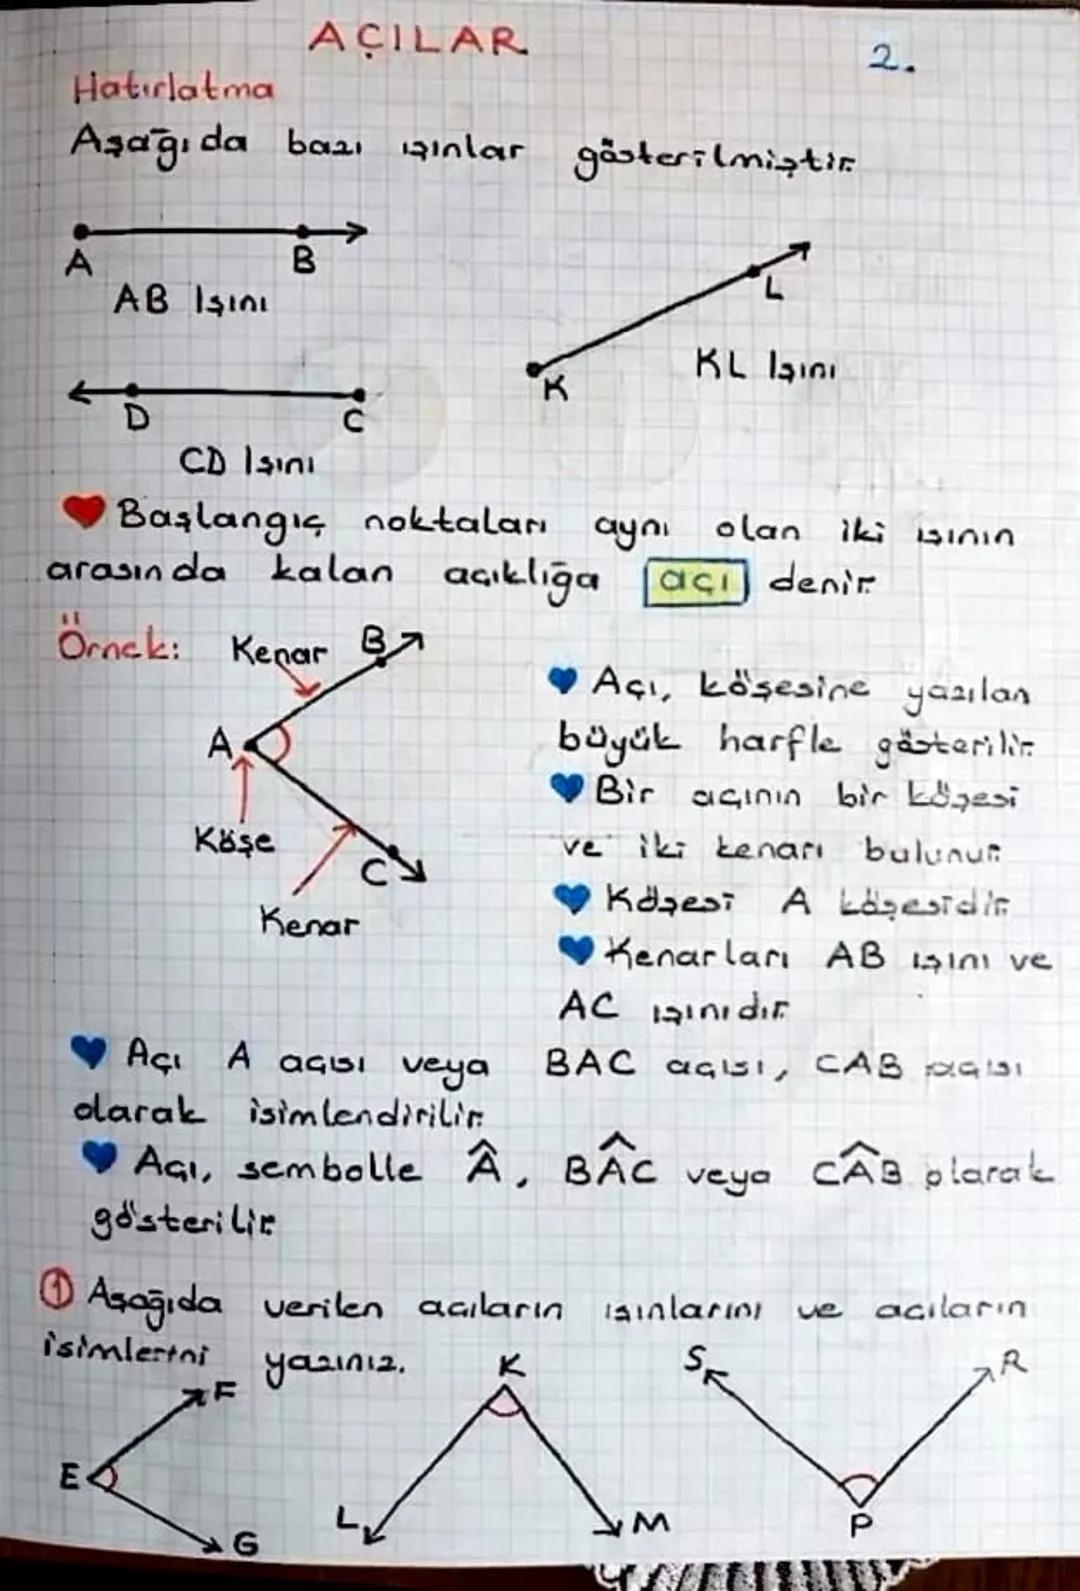 AÇILAR
2.
Hatırlatma
Aşağıda bazı ışınlar gösterilmiştir.
A B
AB Işını
L
K
KL Işını
D C
CD Işını
Başlangıç noktaları aynı olan iki ışının
arasında kalan açıklığa açı denir.
Örnek: Kenar B
A
Köşe
C
Kenar
Açı, köşesine yazılan
büyük harfle gösterilir.
Bir açının bir köşesi
ve iki kenarı bulunur.
Köşesi A köşesidir.
Kenarları AB ışını ve
AC ışınıdır.
Açı A açısı veya BAC açısı, CAB açısı
olarak isimlendirilir.
Açı, sembolle Â, BÂC veya CÂB olarak
gösterilir.
1 Aşağıda verilen açıların ışınlarını ve açıların
isimlerini yazınız.
F
E
G
K
L
M
S
R
P